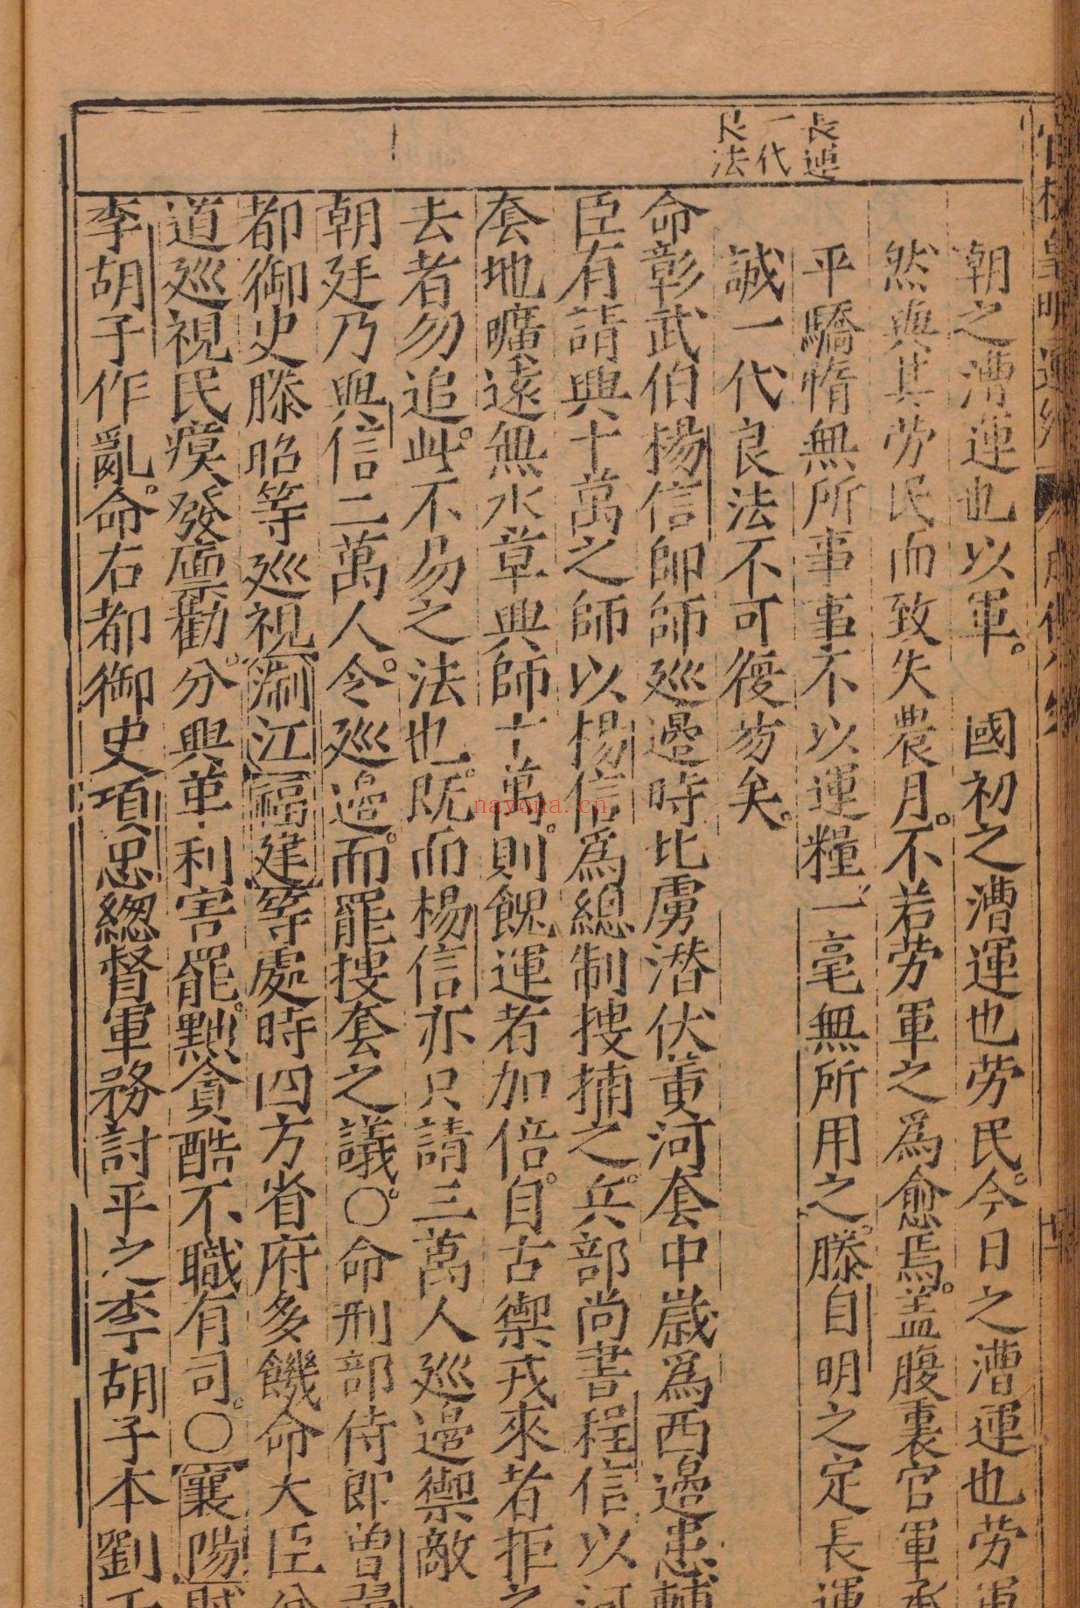 長運
一代
良法
朝之漕運也以軍。 國初之漕運也勞民。今日之漕運也勞軍
然與其勞民而致失農月。不若勞軍之為愈焉。盖腹裏官軍承
平驕惰無所事事不以運糧一毫無所用之。滕自明之定長運
誠一代良法不可復易矣。
命彰武伯楊信帥師巡邊時北虜潛伏黄河套中歲為西邊患輔
臣有請興十萬之師以楊信為總制搜捕之。兵部尚書程信以河
套地曠遠無水草興師十萬。則餽運者加倍。自古禦戎來者拒之
去者勿追。此不易之法也。既而楊信亦只請三萬人巡邊禦敵
朝廷乃與信二萬人。令巡邊。而罷搜套之議。○命刑部侍郎曾
都御史滕昭等巡視淛江福建等處時四方省府多饑命大臣分
道巡視民瘼發廪勸分。興革利害罷黜貪酷不職有司。○襄陽賊
李胡子作亂。命右都御史項忠總督軍務討平之李胡子本劉
nayona.cn